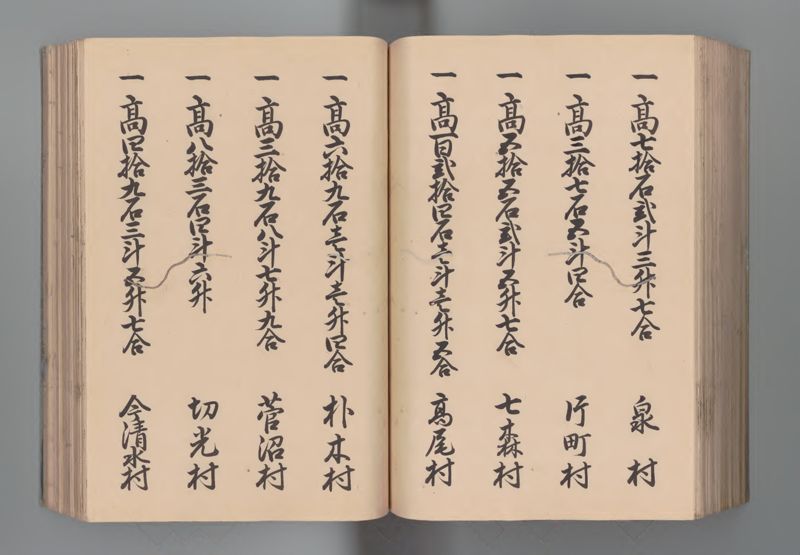 一髙七拾石弐斗三升七合 泉村
一髙三拾七石五斗四合 片町村
一髙五拾五石弐斗五升七合 七森村
一髙百弐拾四石壱斗壱升五合 高尾村
一髙六拾九石壱斗壱升四合 朴木村
一髙三拾九石八斗七升九合 菅沼村
一髙八拾三石四斗六升 切光村
一髙四拾九石三斗五升七合 今清水村